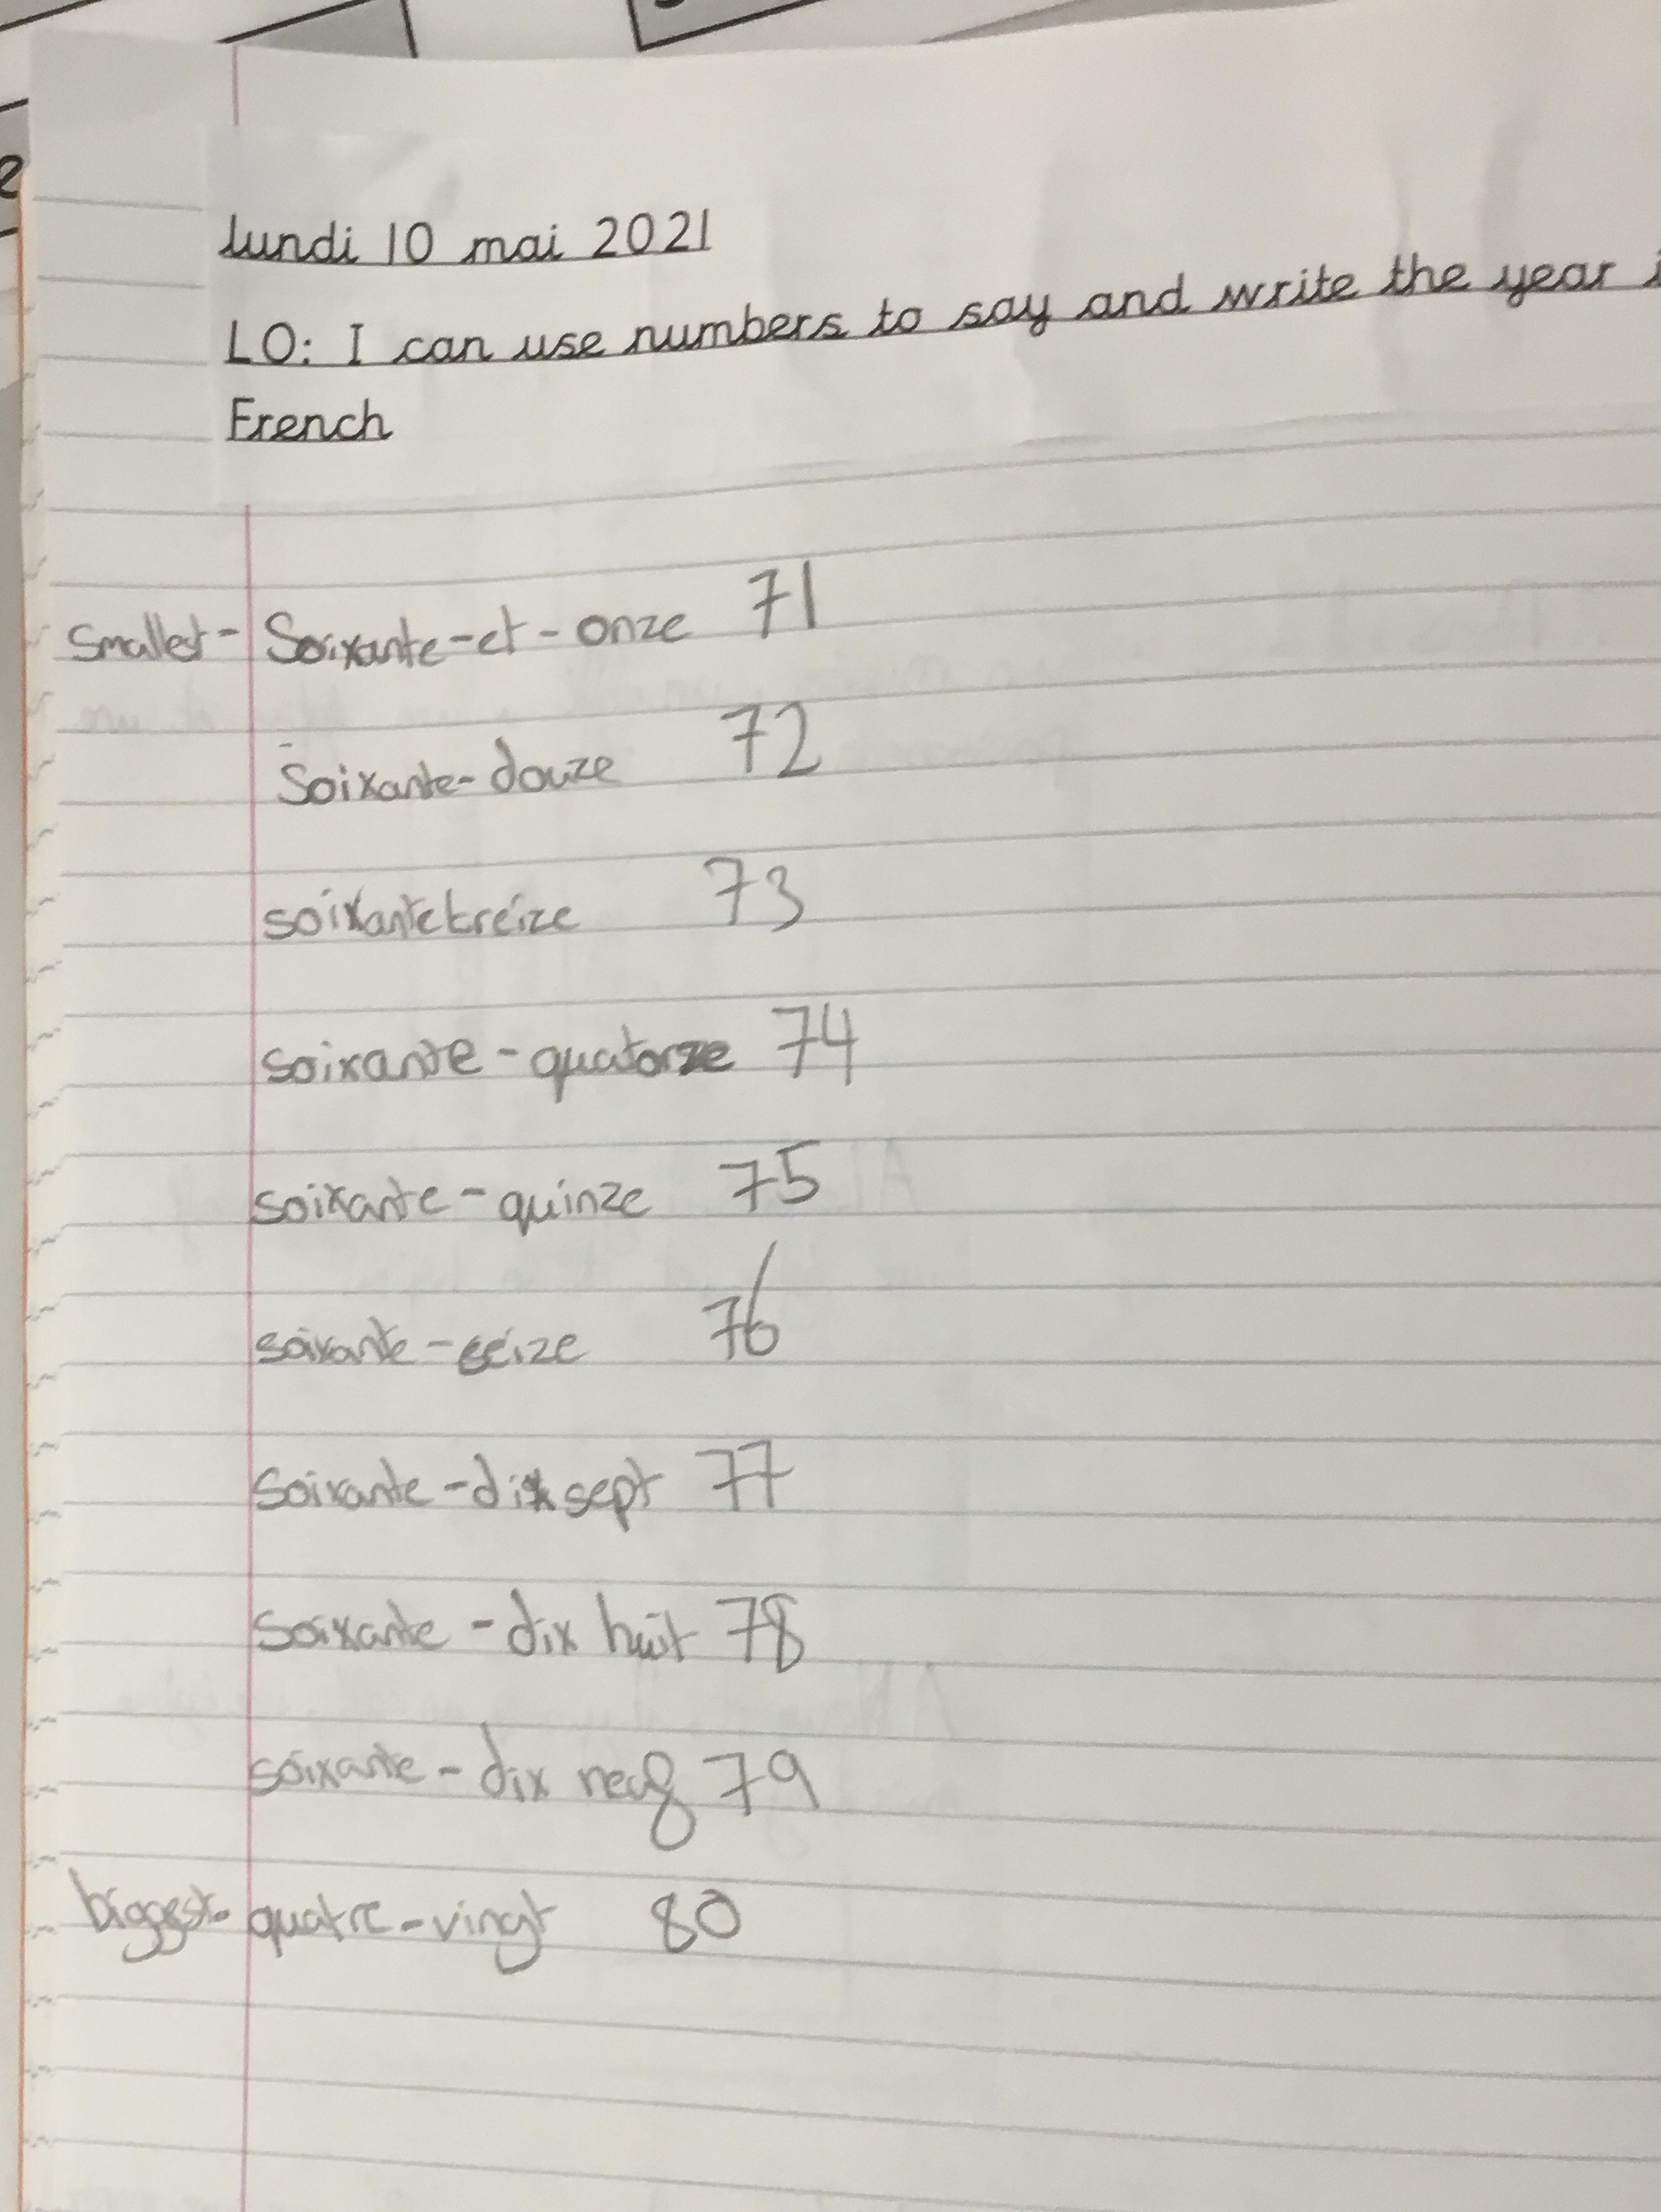 lundi 10 mai 2021
LO: I can use numbers to say and write the year
French
Smallest - Soixante-et-onze 71
Soixante-douze 72
soixantetreize 73
soixante-quatorze 74
soixante-quinze 75
soixante-seize 76
Soixante-dix sept 77
soixante-dix huit 78
soixante-dix neuf 79
biggest- quatre-vingt 80